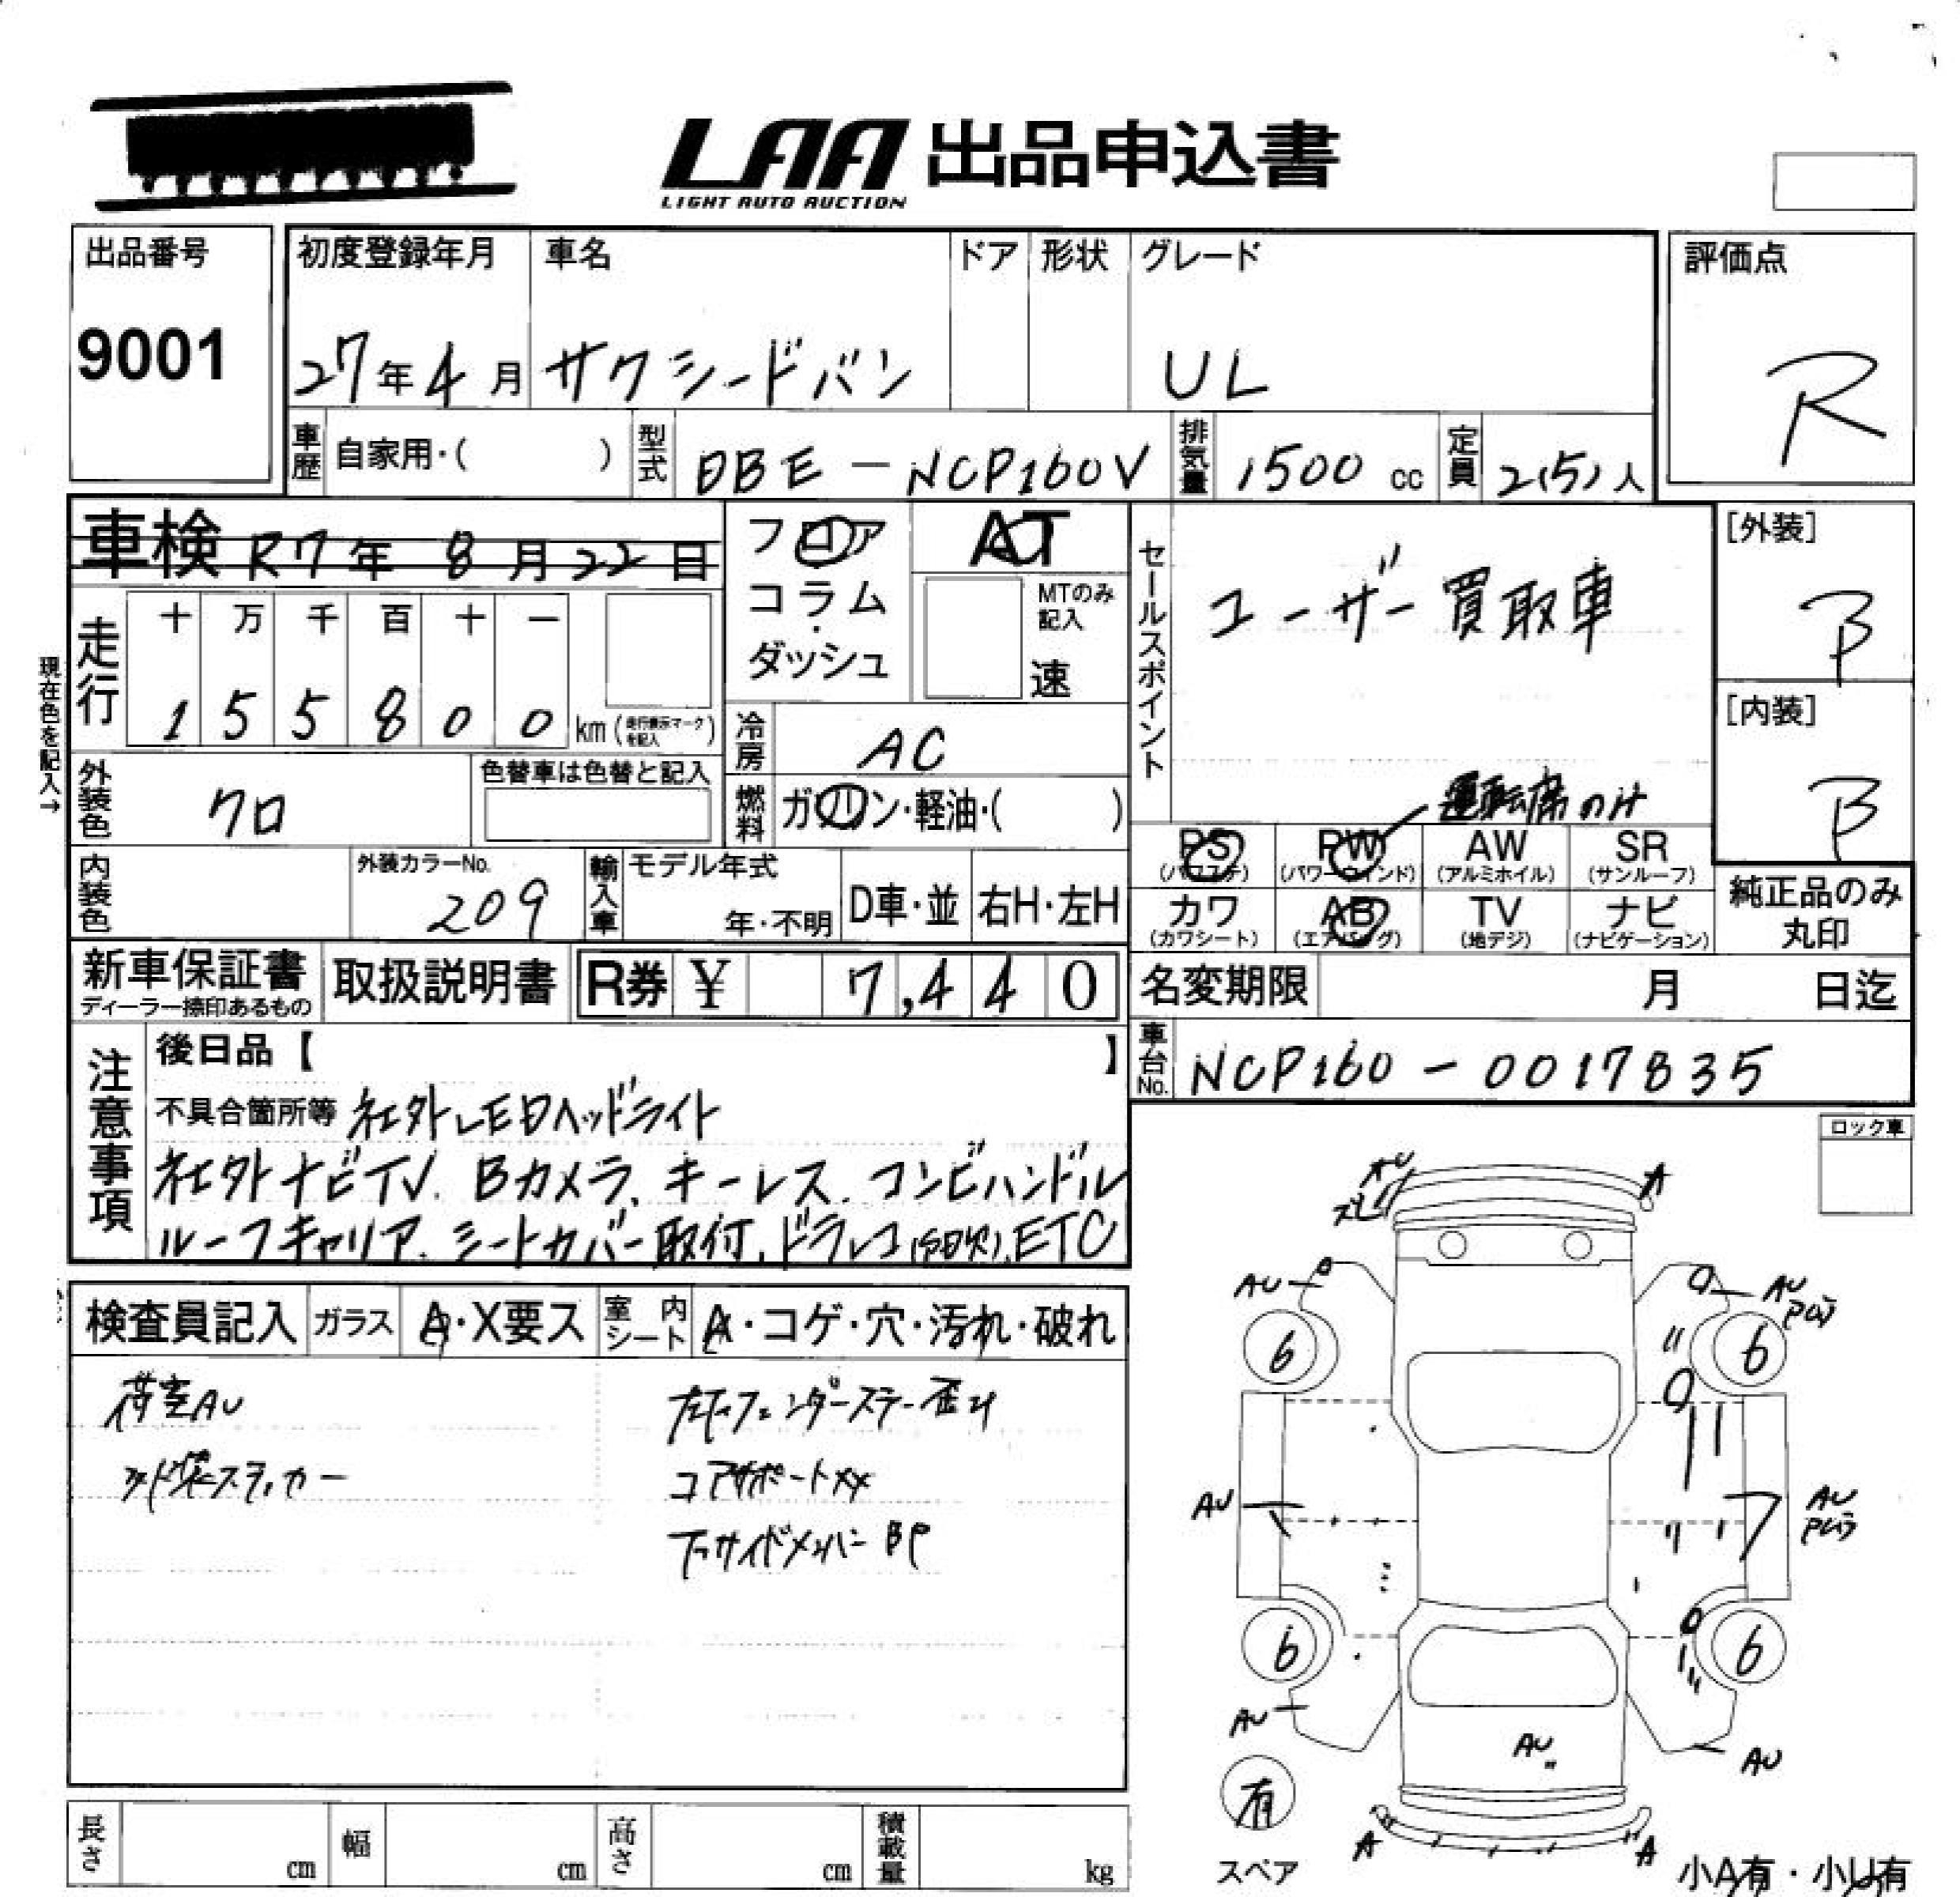 LAA 出品申込書
LIGHT AUTO AUCTION
出品番号
9001
初度登録年月 車名 ドア 形状 グレード
27年4月 サクシードバン UL
評価点
R
車歴 自家用・( ) 型式 DBE-NCP160V 排気量 1500 cc 定員 2(5)人
車検 R7年 8月 22日
フロア
コラム
・
ダッシュ
AT
MTのみ
記入
速
セールスポイント
ユーザー買取車
[外装]
B
[内装]
B
現在色を記入→
走行
十 万 千 百 十 一
1 5 5 8 0 0 km (走行表示マークを記入)
冷房 AC
燃料 ガソリン・軽油・( )
外装色 クロ
色替車は色替と記入
運転席のみ
PS AW SR
(パワステ) (アルミホイル) (サンルーフ)
PW
(パワーウインド)
カワ AB TV ナビ
(カワシート) (エアバッグ) (地デジ) (ナビゲーション)
純正品のみ
丸印
内装色
外装カラーNo.
209
輸入車 モデル年式
年・不明
D車・並 右H・左H
新車保証書
ディーラー捺印あるもの
取扱説明書
R券 ¥ 7,440
名変期限 月 日迄
車台No. NCP160-0017835
注意事項
後日品【 】
不具合箇所等 社外LEDヘッドライト
社外ナビTV. Bカメラ. キーレス. コンビハンドル
ルーフキャリア. シートカバー取付. ドラレコ ETC
ロック車
検査員記入 ガラス A・X要ス 室内シート A・コゲ・穴・汚れ・破れ
荷室AU
外装ステッカー
フェンダーステー歪み
コアサポートXX
サイドメンバー BP
A
AU
AU
6
6
AU
AU
6
6
AU
AU
AU
有
スペア
A
A
小A有・小U有
長さ cm 幅 cm 高さ cm 積載量 kg